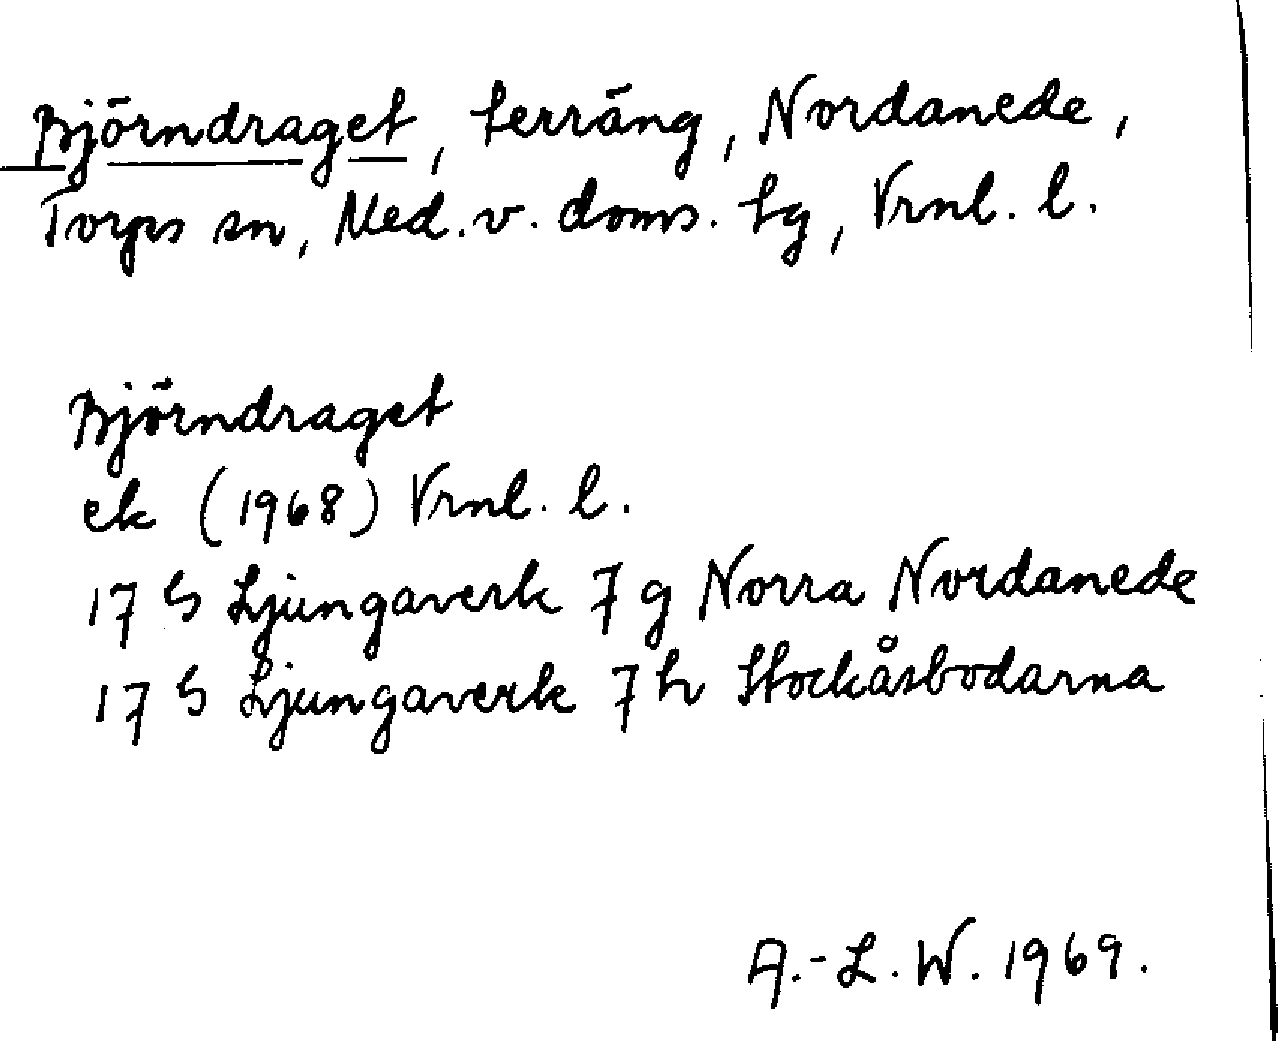 Björndraget, terräng, Nordanede,
Torps sn, Med. v. doms. tg, Vrnl. l.
Björndraget
ek (1968) Vrnl. l.
17 G Ljungaverk 7 g Norra Nordanede
17 G Ljungaverk 7 h Stockåsbodarna
A.-L. W. 1969.